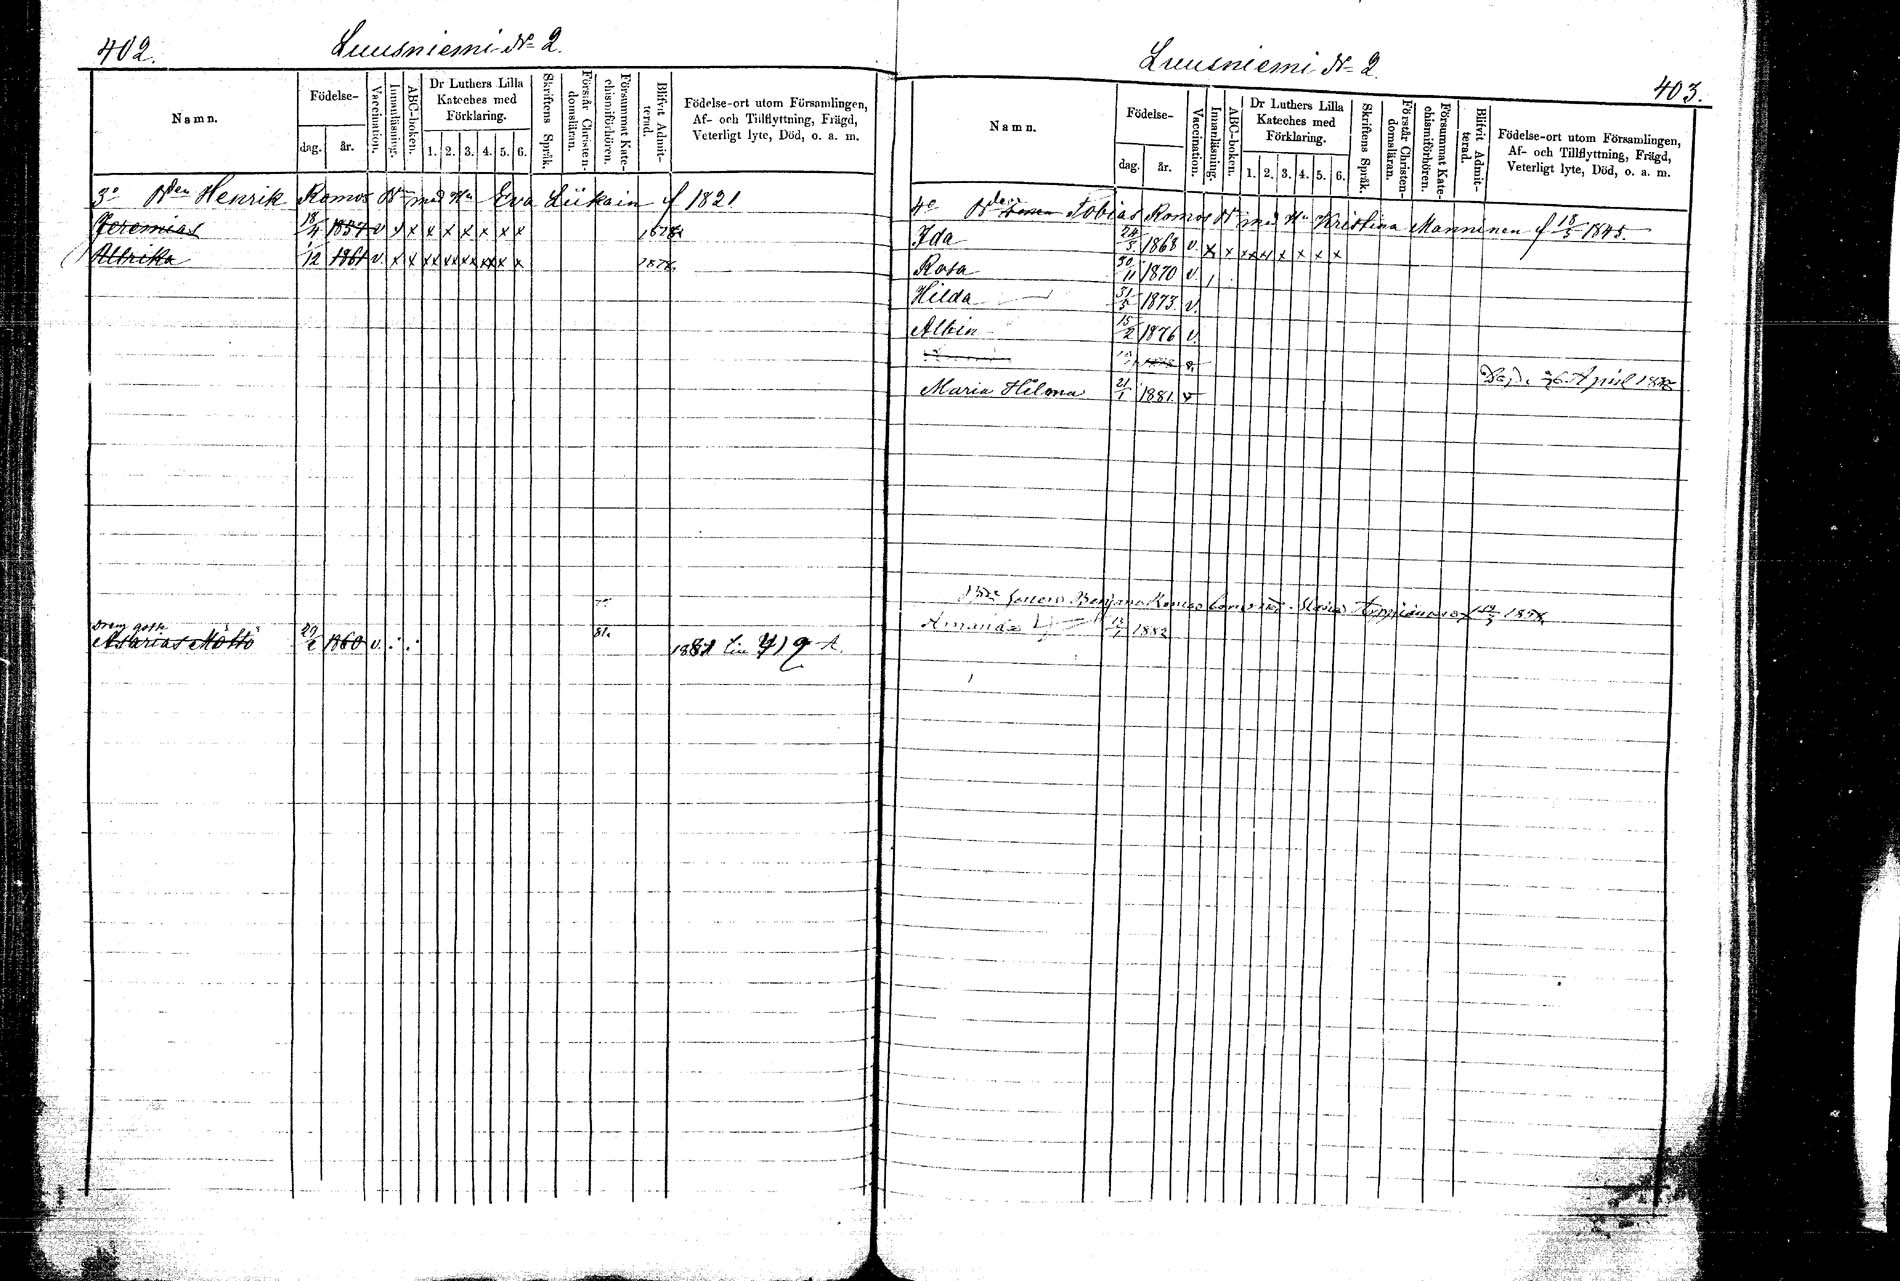 402.
Luusniemi N° 2.
Namn.
Födelse-
dag.
år.
Vaccination.
Innanläsning.
ABC-boken.
Dr Luthers Lilla
Kateches med
Förklaring.
1. 2. 3. 4. 5. 6.
Skriftens Språk.
Förstår Christen-
domsläran.
Försummat Kate-
chismiförhören.
Blifvit Admit-
terad.
Födelse-ort utom Församlingen,
Af- och Tillflyttning, Frägd,
Veterligt lyte, Död, o. a. m.
3° Bden Henrik Romos Bn med Hu Eva Liikain f 1821
Jeremias 18/4 1857 v x x x x x x x x 1878
Ulrika 1/12 1861 v. x x xx xx xx xx x x 1878
Dräng goss
Asarias Möttö 29/2 1860 v. 81. 1881 Lin 419
Luusniemi N° 2.
403.
Namn.
Födelse-
dag.
år.
Vaccination.
Innanläsning.
ABC-boken.
Dr Luthers Lilla
Kateches med
Förklaring.
1. 2. 3. 4. 5. 6.
Skriftens Språk.
Förstår Christen-
domsläran.
Försummat Kate-
chismiförhören.
Blifvit Admit-
terad.
Födelse-ort utom Församlingen,
Af- och Tillflyttning, Frägd,
Veterligt lyte, Död, o. a. m.
4° Bden Tobias Romos Bn med Hu Kristina Manninen f 18/5 1845.
Ida 24/3 1868 v. x x xx x x x x x
Rosa 30/11 1870 v.
Hilda 31/5 1873. v.
Albin 15/2 1876 v.
April
Maria Hilma 21/1 1881. v
Benjam Romos
Amanda 1882